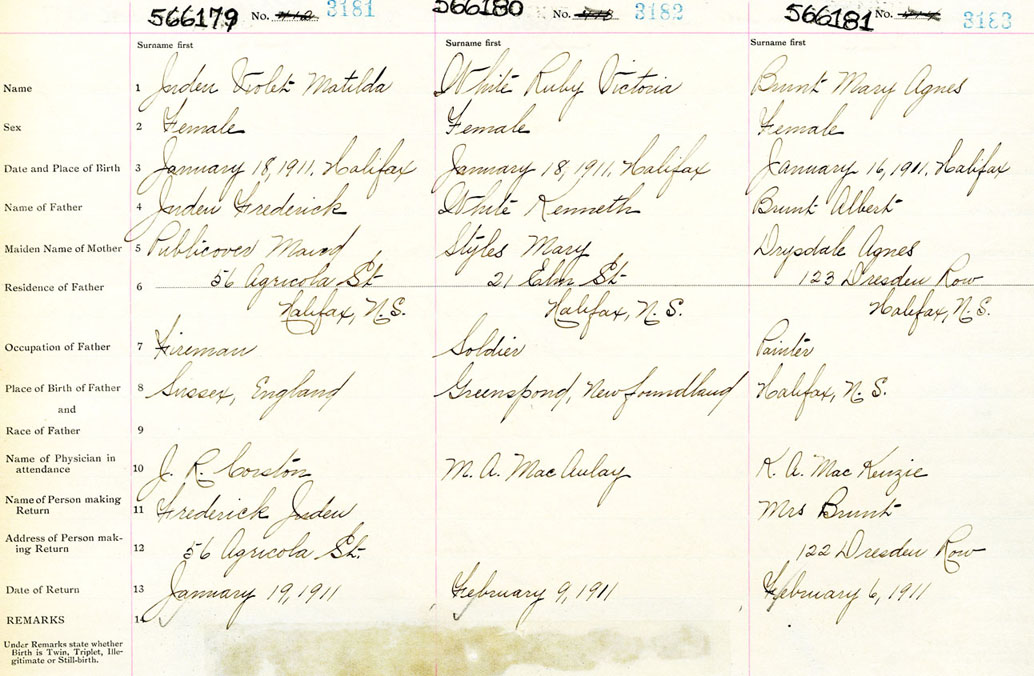 566179 No. 3181 566180 No. 3182 566181 No. 3183
Surname first Surname first Surname first
Name 1 Juden Violet Matilda White Ruby Victoria Brunt Mary Agnes
Sex 2 Female Female Female
Date and Place of Birth 3 January 18, 1911, Halifax January 18, 1911, Halifax January 16, 1911, Halifax
Name of Father 4 Juden Frederick White Kenneth Brunt Albert
Maiden Name of Mother 5 Publicover Maud Styles Mary Drysdale Agnes
Residence of Father 6 56 Agricola St. 21 Elm St. 123 Dresden Row
Halifax, N.S. Halifax, N.S. Halifax, N.S.
Occupation of Father 7 Fireman Soldier Painter
Place of Birth of Father 8 Sussex, England Greenspond, Newfoundland Halifax, N.S.
and
Race of Father 9
Name of Physician in
attendance 10 J. R. Corston M. A. MacAulay K. A. MacKenzie
Name of Person making
Return 11 Frederick Juden Mrs Brunt
Address of Person mak-
ing Return 12 56 Agricola St. 122 Dresden Row
Date of Return 13 January 19, 1911 February 9, 1911 February 6, 1911
REMARKS 14
Under Remarks state whether
Birth is Twin, Triplet, Ille-
gitimate or Still-birth.